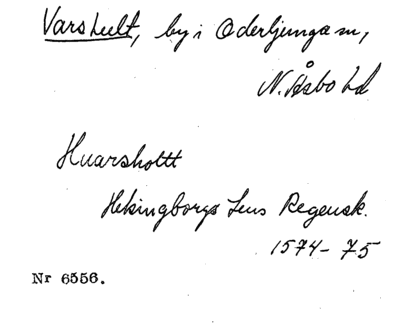 Varshult, by i Oderljunga sn,
N. Åsbo hd
Huarsholtt
Helsingborgs Lens Regensk.
1574-75
Nr 6556.